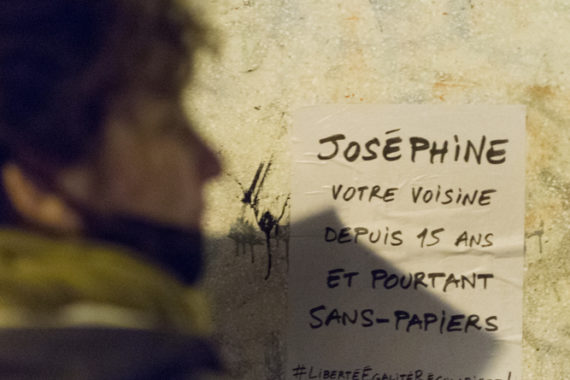 JOSÉPHINE
VOTRE VOISINE
DEPUIS 15 ANS
ET POURTANT
SANS-PAPIERS
#LIBERTÉÉGALITÉ